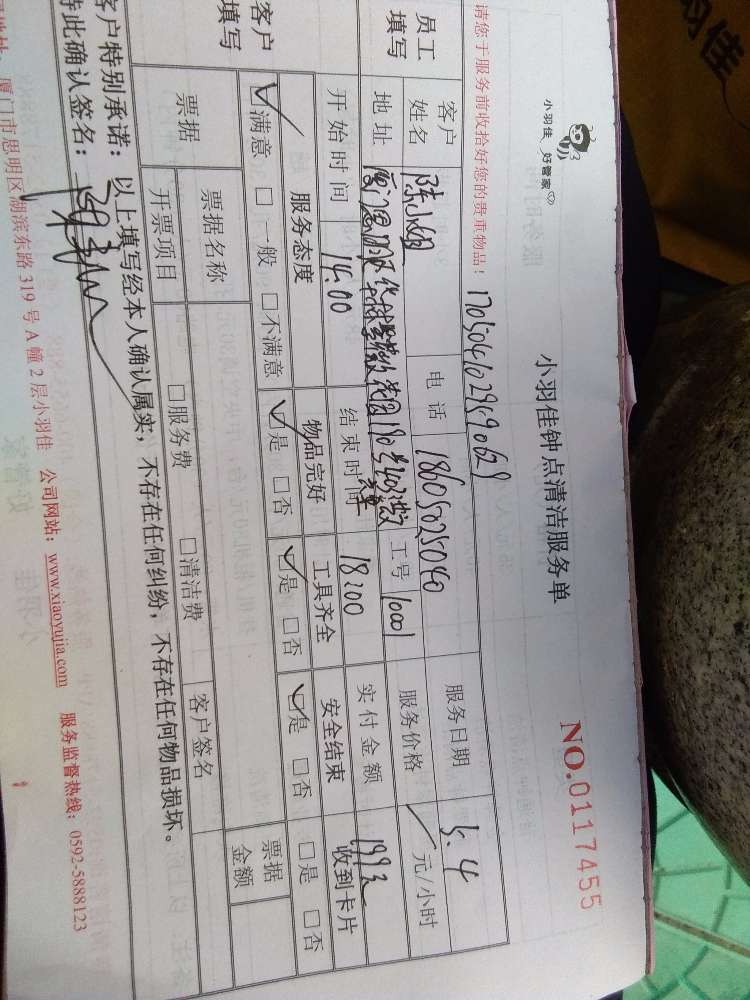 小羽佳 好管家
小羽佳钟点清洁服务单
NO.0117455
请您于服务前收拾好您的贵重物品！ 1705041029590629
员工填写 客户姓名 陈小姐 电话 18605025040 服务日期 5.4
地址 工号 1001 服务价格 元/小时
开始时间 14:00 结束时间 18:00 实付金额 199元
客户填写 服务态度 物品完好 工具齐全 安全结束 收到卡片
☑满意 □一般 □不满意 ☑是 □否 ☑是 □否 ☑是 □否 □是 □否
票据 票据名称 票据金额
开票项目 □服务费 □清洁费 客户签名
客户特别承诺：以上填写经本人确认属实，不存在任何纠纷，不存在任何物品损坏。
特此确认签名：
厦门市思明区湖滨东路319号A幢2层小羽佳 公司网站：www.xiaoyujia.com 服务监督热线：0592-5888123